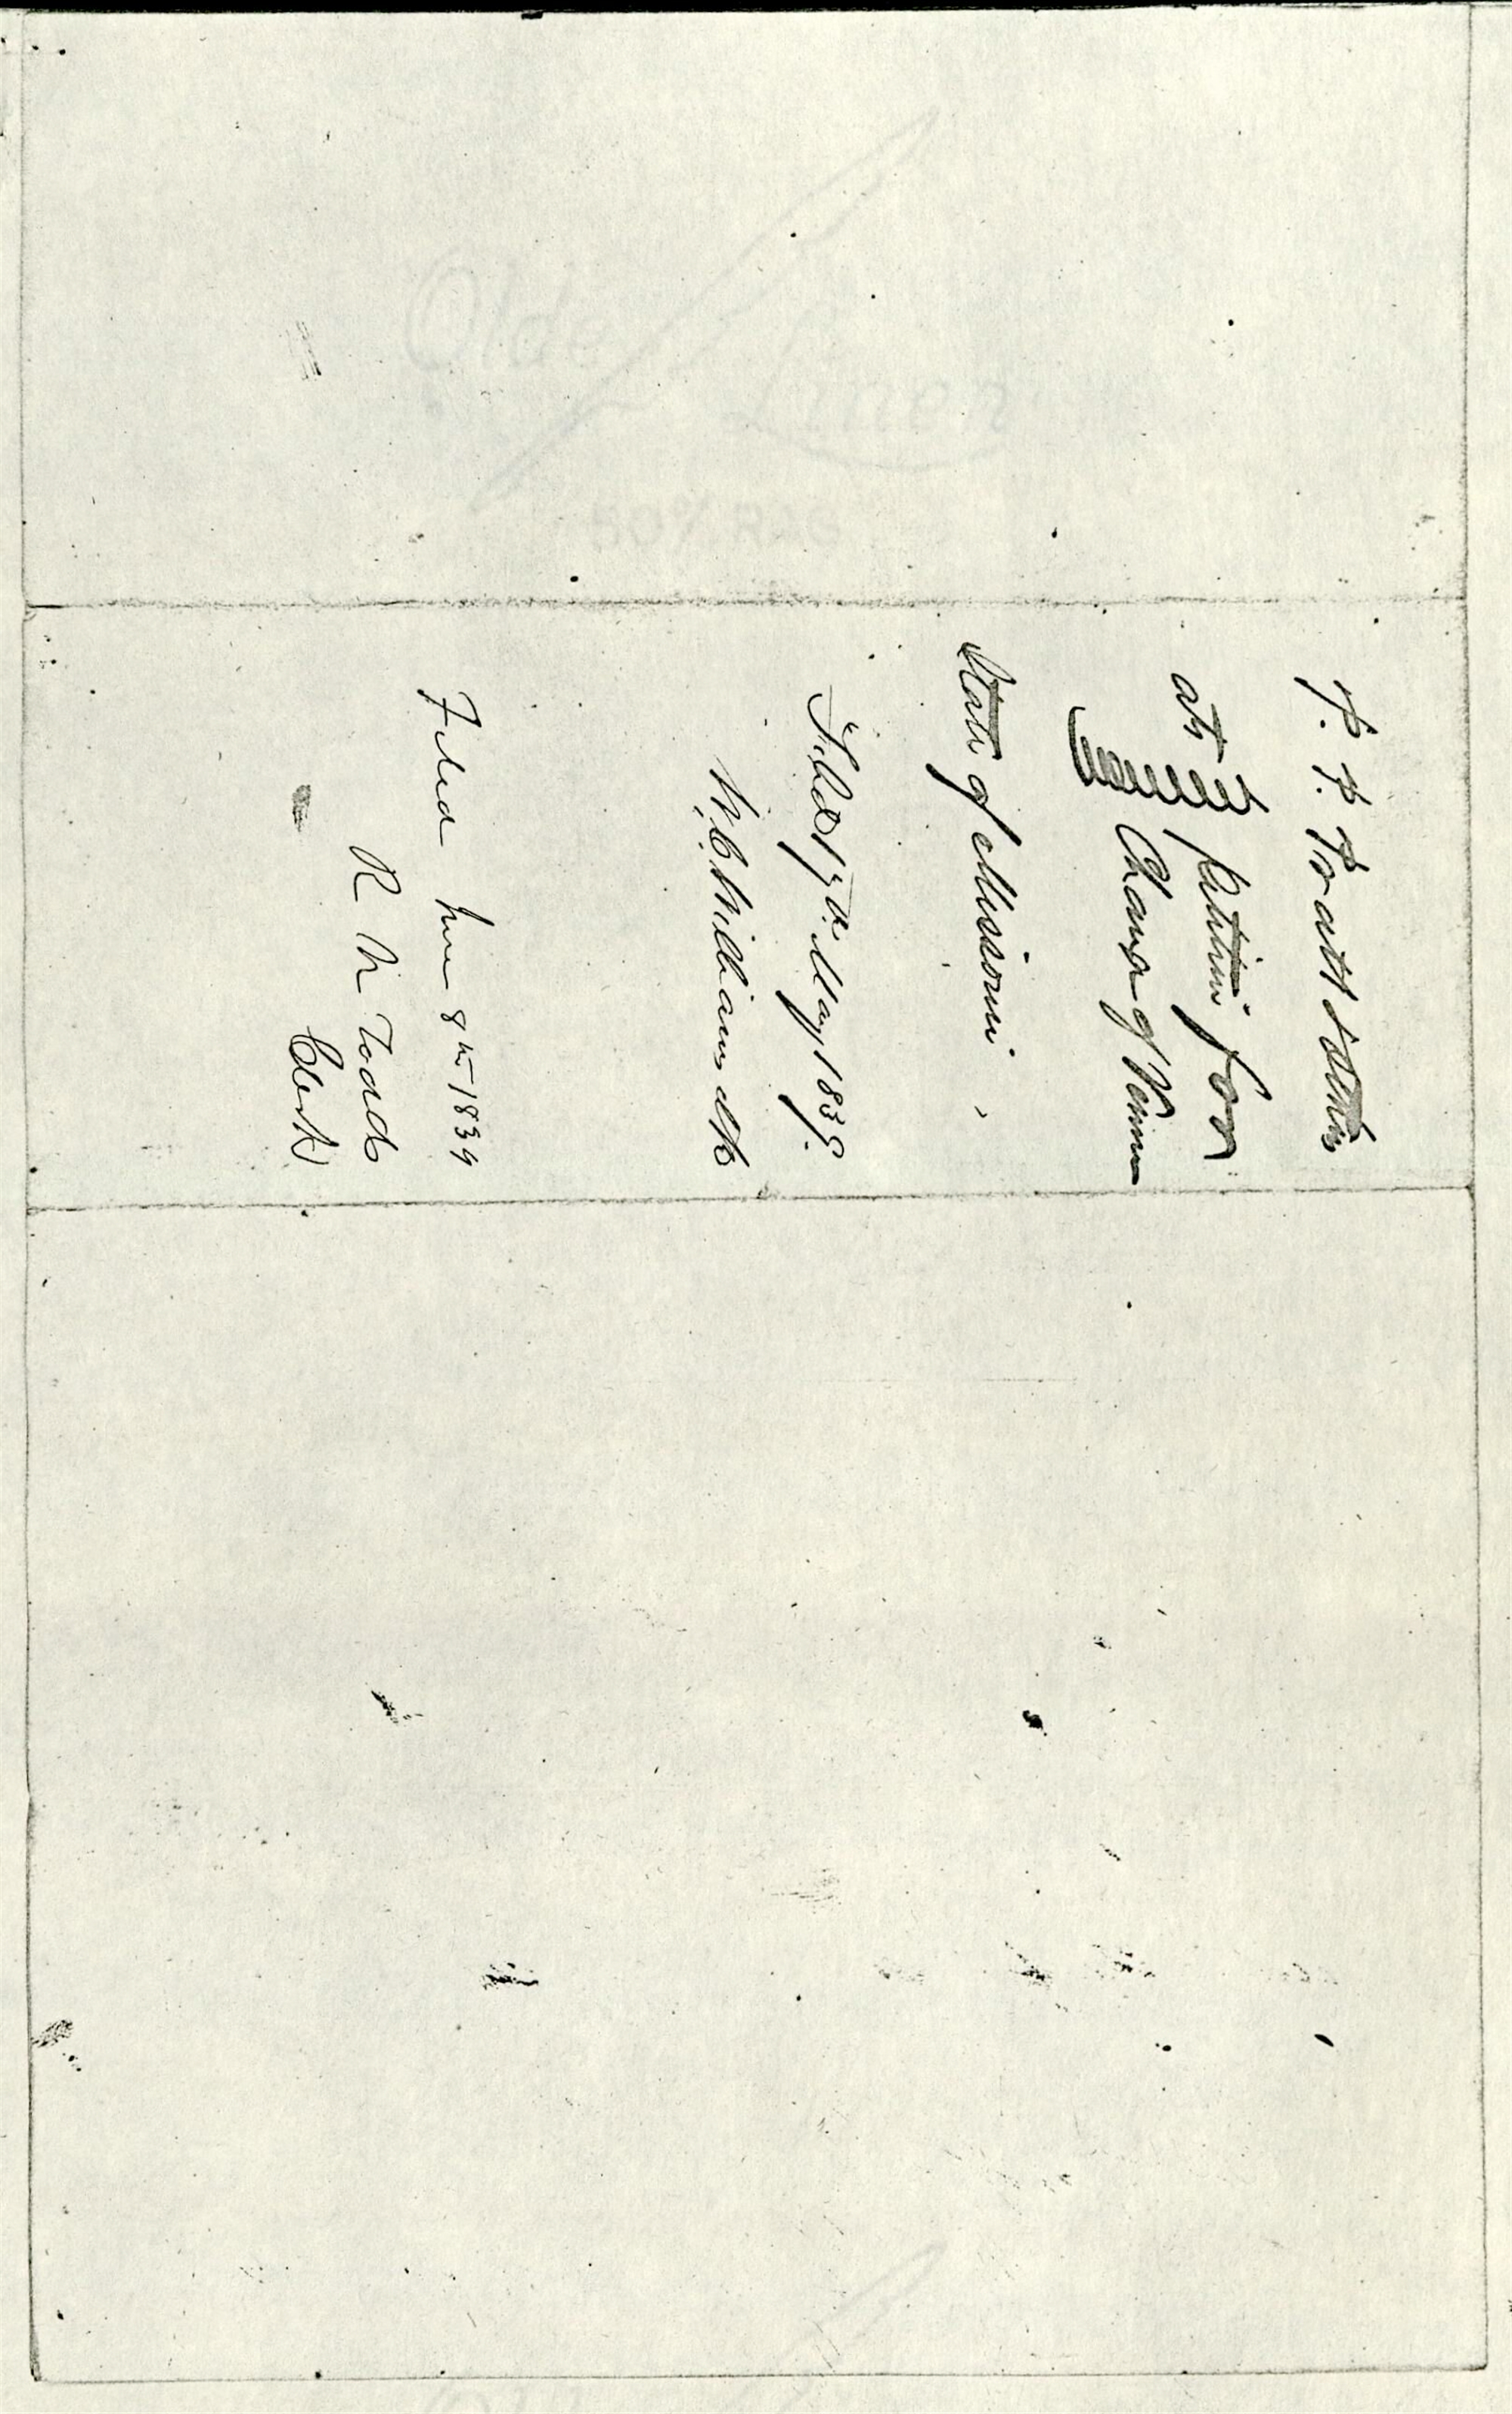 P. P. Pratt & others
ats petition for
Change of Venue
State of Missouri
Filed 17th May 1839
W. C. Williams clk
Filed June 8th 1839
R N Todd
Clerk
Olde
Linen
50% RAG